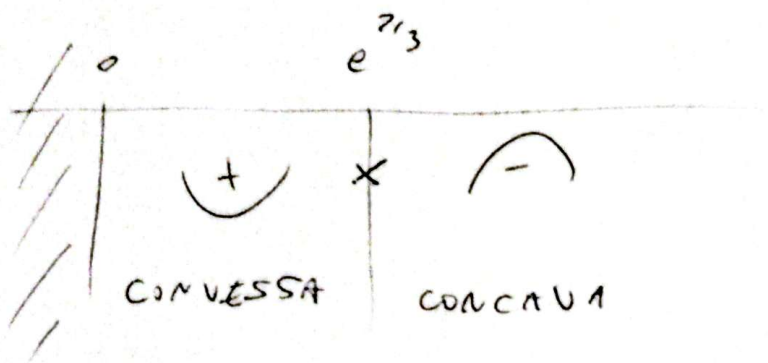 0 e^7/3
+ × -
CONVESSA CONCAVA